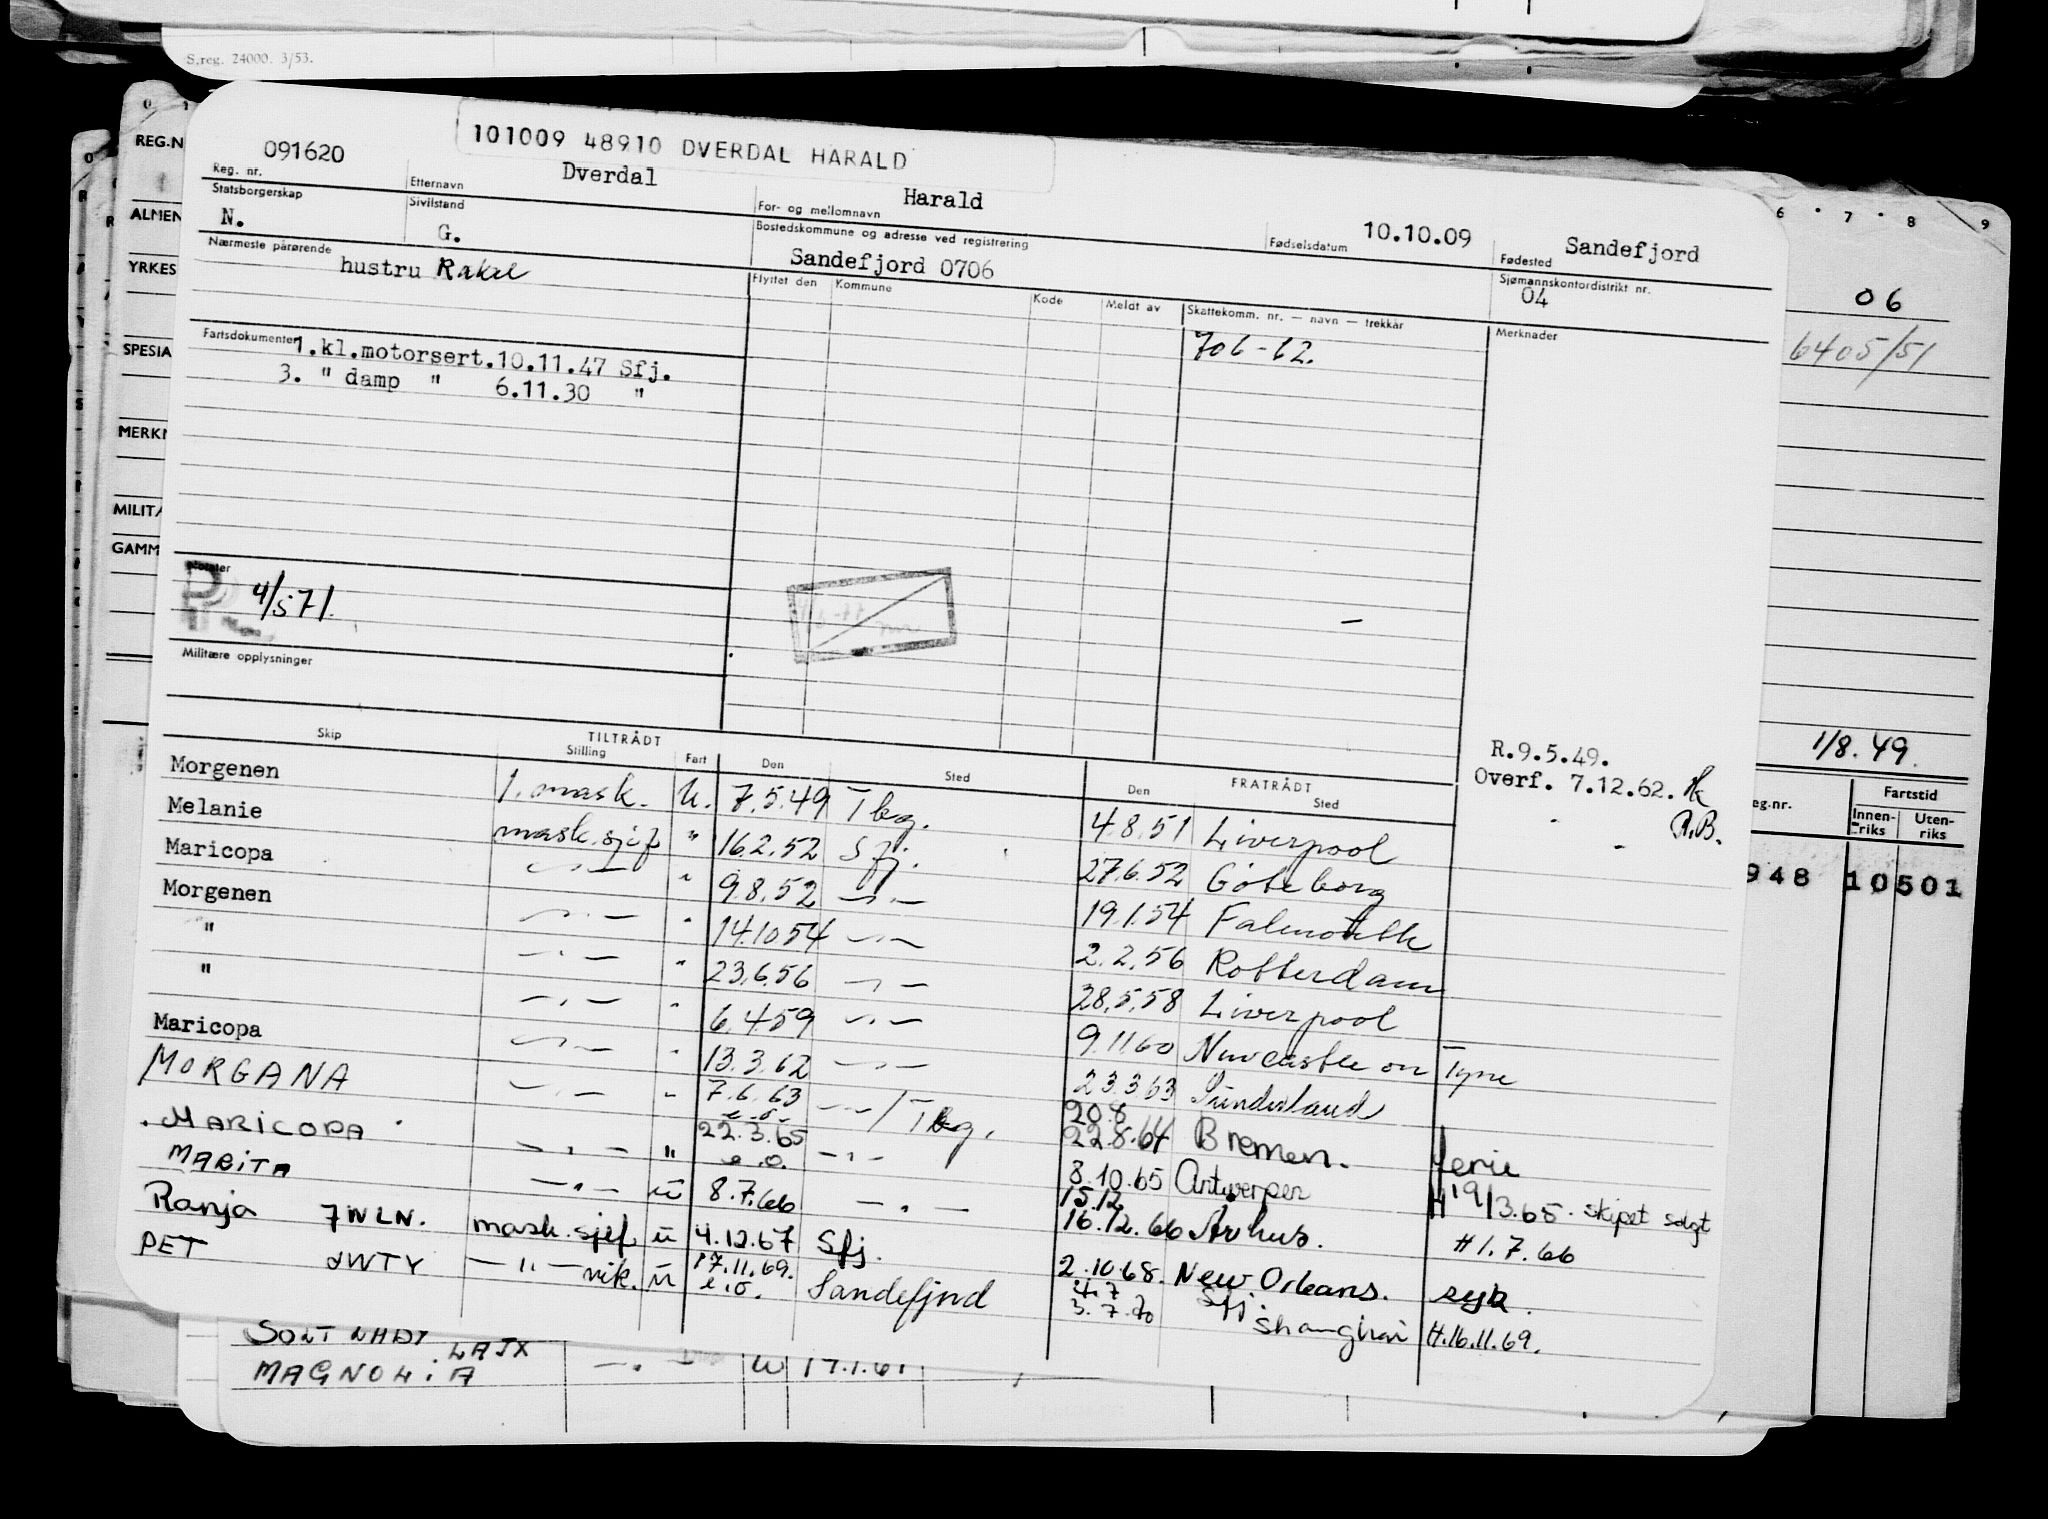 S.reg. 24000. 3/53.
0 1
REG.N
ALMEN
YRKES
SPESIA
MERKN
MILITÆ
GAMM
101009 48910 DVERDAL HARALD
091620 Dverdal Harald 10.10.09 Sandefjord
Reg. nr. Etternavn For- og mellomnavn Fødselsdatum Fødested
Statsborgerskap Sivilstand Bostedskommune og adresse ved registrering Sjømannskontordistrikt nr.
N. G. Sandefjord 0706 04
Nærmeste pårørende Flyttet den Kommune Kode Meldt av Skattekomm. nr. — navn — trekkår Merknader
hustru Rakel
706-62.
Fartsdokumenter
1.kl.motorsert.10.11.47 Sfj.
3. " damp " 6.11.30 "
Notater
4/571.
Militære opplysninger
R.9.5.49.
Overf. 7.12.62.
A.B.
Skip TILTRÅDT FRATRÅDT
Stilling Fart Den Sted Den Sted
Morgenen 1. mask. U. 7.5.49 Tbg. 4.8.51 Liverpool
Melanie mask.sjef " 16.2.52 Sfj. 27.6.52 Göteborg
Maricopa —·— " 9.8.52 —·— 19.1.54 Falmouth
Morgenen —·— " 14.10.54 —·— 2.2.56 Rotterdam
" —·— " 23.6.56 —·— 28.5.58 Liverpool
" —·— " 6.4.59 —·— 9.11.60 Newcastle on Tyne
Maricopa —·— " 13.3.62 —·— 23.3.63 Sunderland
MORGANA —·— " 7.6.63 e.o. —·—/Tbg. 20.8 22.8.64 Bremen. ferie
MARICOPA —·— " 22.3.65 e.o. —·— 8.10.65 Antwerpen H 19/3.65. skipet solgt
MARITA —·— u 8.7.66 —·— 15.12 16.12.66 Århus. H 1.7.66
Ranja JWLN. mask.sjef u 4.12.67 Sfj. 2.10.68. New Orleans. syk.
PET JWTY —"— vik. u 17.11.69. e.o. Sandefjord 4.7 3.7.70 Sfj. Shanghai H.16.11.69.
6 · 7 · 8 9
06
6405/51
1/8.49.
eg.nr. Fartstid
Innen-riks Uten-riks
948 10501
LAJX
MAGNOLIA —·— U 17.1.61